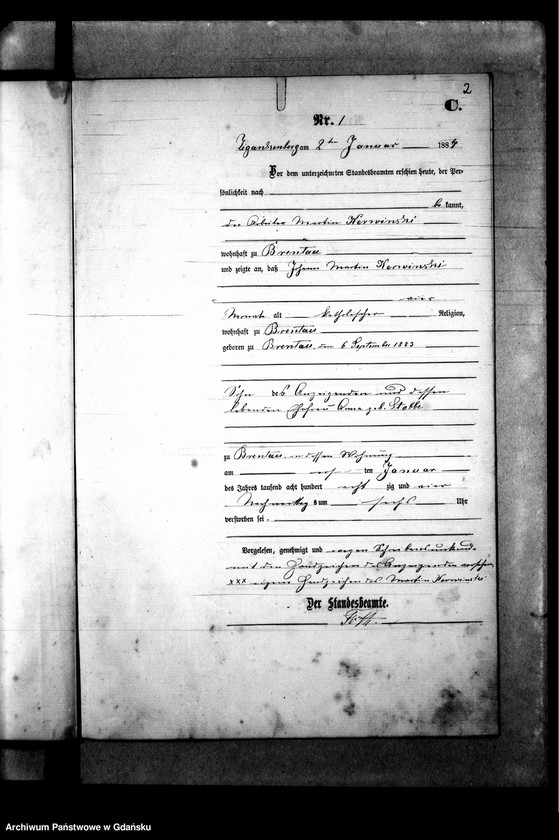 2
C.
Nr. 1
Zigankenberg am 2ten Januar 1884
Vor dem unterzeichneten Standesbeamten erschien heute, der Per-
sönlichkeit nach
be kannt,
der Arbeiter Martin Kerwinski
wohnhaft zu Brentau
und zeigte an, daß Johann Martin Kerwinski
vier
Monate alt katholischer Religion,
wohnhaft zu Brentau
geboren zu Brentau, den 6 September 1883
Sohn des Anzeigenden und dessen
lebenden Ehefrau Anna geb. Stobbe
zu Brentau in dessen Wohnung
am ersten Januar
des Jahres tausend acht hundert acht zig und vier
Nachmittags um sechs Uhr
verstorben sei.
Vorgelesen, genehmigt und wegen Schreibensunkunde
mit den Handzeichen des Anzeigenden versehen
xxx eigene Handzeichen des Martin Kerwinski
Der Standesbeamte.
Archiwum Państwowe w Gdańsku